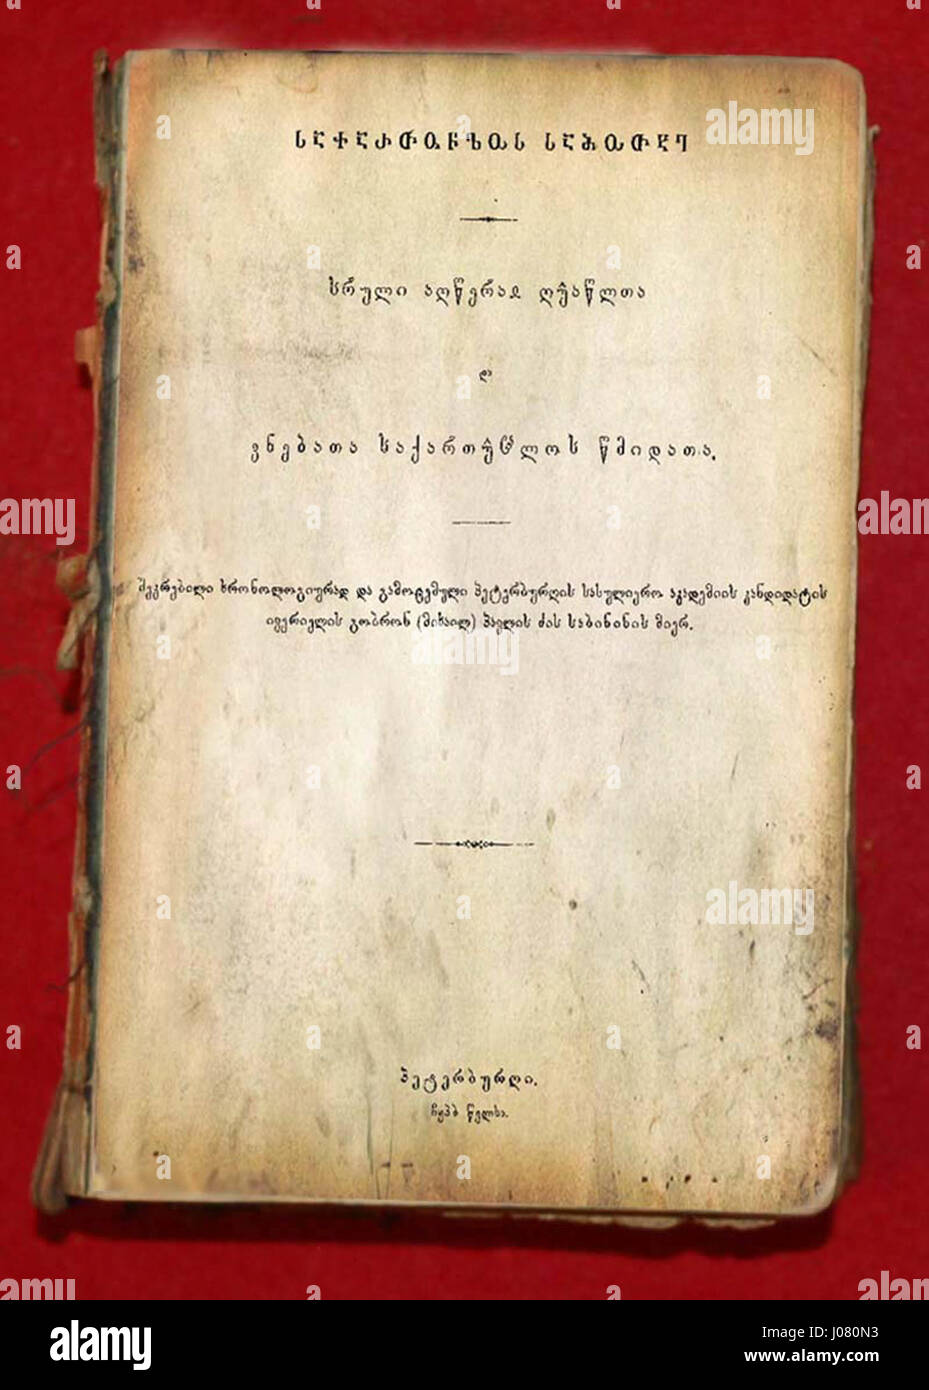 ႱႠႵႠႰႧႥႤႪႭႱ ႱႠႫႭႧႾႤ
სრული აღწერაჲ ღუაწლთა
და
ვნებათა საქართუჱლოს წმიდათა.
შეკრებილი ხრონოლოგიურად და გამოცემული პეტერბურღის სასულიერო აკადემიის კანდიდატის
ივერიელის გობრონ (მიხაილ) პავლის ძის საბინინის მიერ.
პეტერბურღი.
ჩყპბ წელსა.
alamy
alamy
alamy
alamy
alamy
alamy
www.alamy.com - J080N3